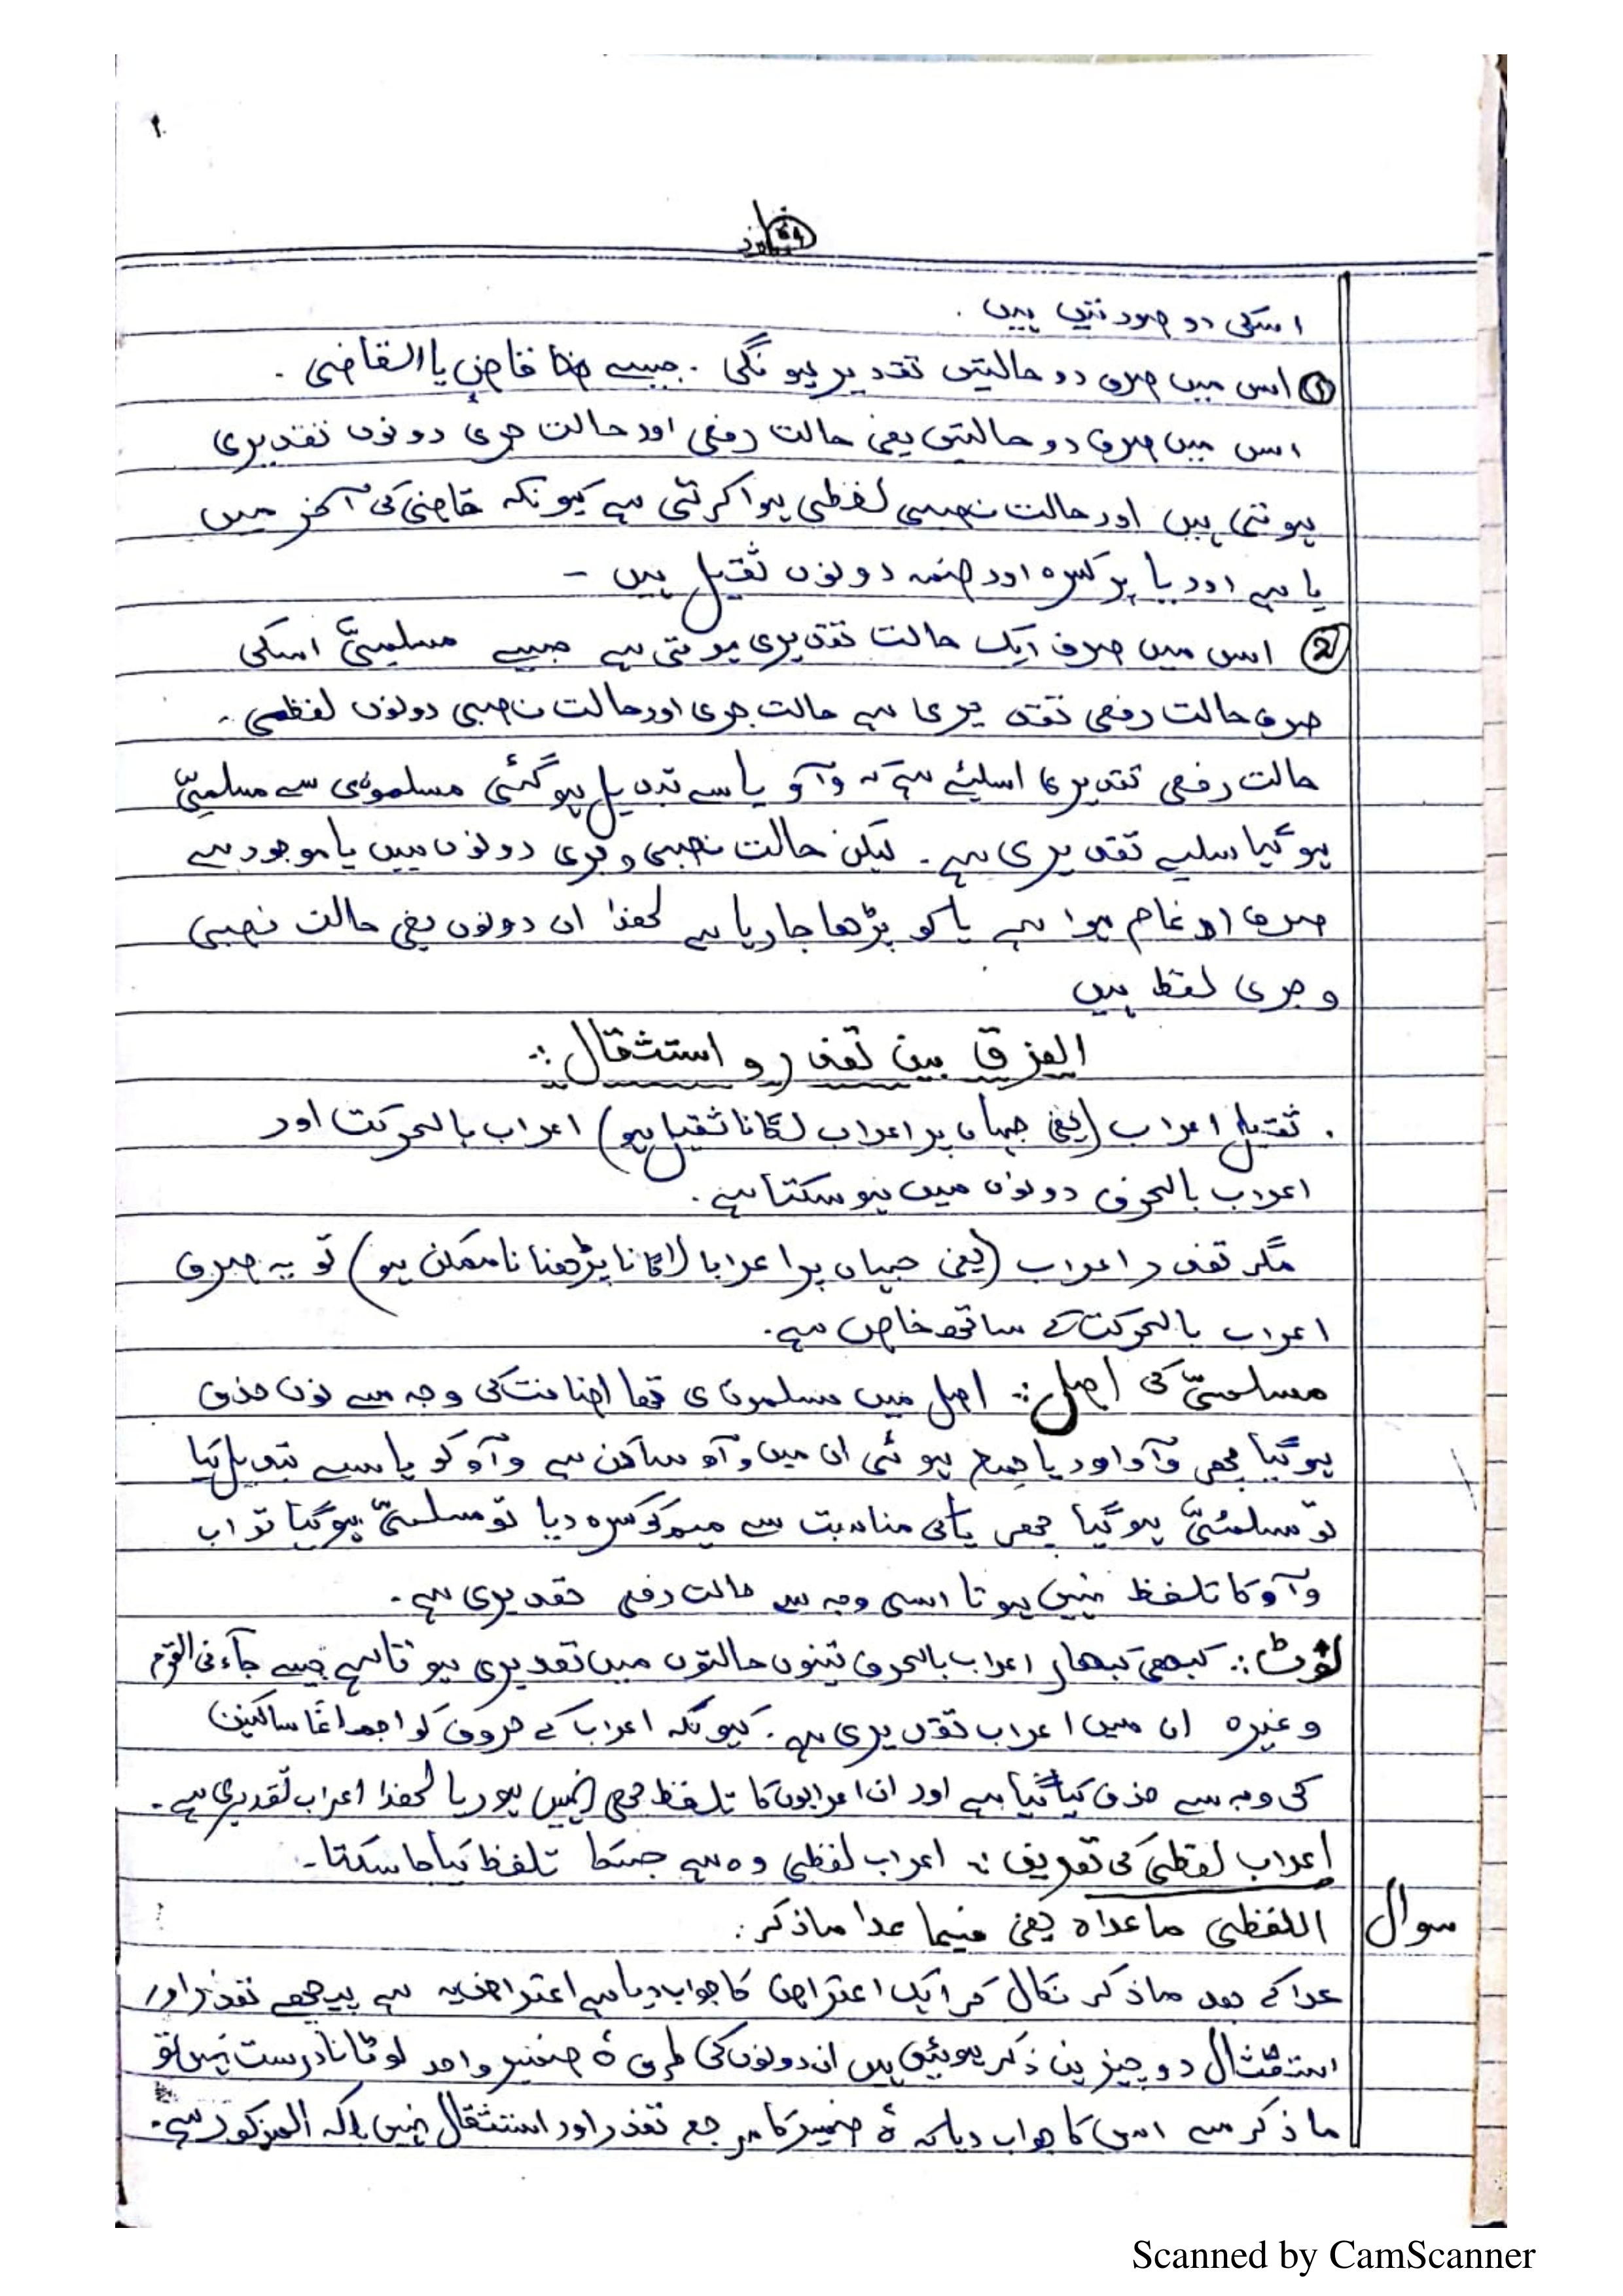 اسکی دو صورتیں ہیں ۔
① اس میں صرف دو حالتیں تقدیر ہونگی ۔ جیسے قاضٍ یا القاضی ۔
اس میں صرف دو حالتیں یعنی حالت رفعی اور حالت جری دونوں تقدیری
ہوتی ہیں اور حالت نصبی لفظی ہوا کرتی ہے کیونکہ قاضی کی آخر میں
یا ہے اور یا پر کسرہ اور ضمہ دونوں ثقیل ہیں ۔
② اس میں صرف ایک حالت تقدیری ہوتی ہے جیسے مسلمیَّ اسکی
صرف حالت رفعی تقدیری ہے حالت جری اور حالت نصبی دونوں لفظی ۔
حالت رفعی تقدیری اسلیئے ہے کہ وآؤ یا سے تبدیل ہوگئی مسلمونی سے مسلمیَّ
ہوگیا سلیے تقدیری ہے ۔ لیکن حالت نصبی و جری دونوں میں یا موجود ہے
صرف ادغام ہوا ہے یا کو پڑھا جا رہا ہے لھذا ان دونوں یعنی حالت نصبی
و جری لفظ ہیں
الفرق بین تعذر و استثقال :۔
. ثقیل اعراب (یعنی جہاں پر اعراب لگانا ثقیل ہو) اعراب بالحرکت اور
اعراب بالحرف دونوں میں ہو سکتا ہے ۔
مگر تعذر اعراب (یعنی جہاں پر اعراب لگانا پڑھنا نا ممکن ہو) تو یہ صرف
اعراب بالحرکت کے ساتھ خاص ہے ۔
مسلمیَّ کی اصل :۔ اصل میں مسلمونی تھا اضافت کی وجہ سے نون حذف
ہوگیا پھر وآؤ اور یا جمع ہوئی ان میں وآؤ ساکن ہے وآؤ کو یا سے تبدیل کیا
تو مسلمُیَّ ہوگیا پھر یا کی مناسبت سے میم کو کسرہ دیا تو مسلمیَّ ہوگیا تو اب
وآؤ کا تلفظ نہیں ہوتا اسی وجہ سے حالت رفعی تقدیری ہے ۔
نوٹ :۔ کبھی کبھار اعراب بالحرف تینوں حالتوں میں تقدیری ہوتا ہے جیسے جآءنی القوم
وغیرہ ان میں اعراب تقدیری ہے ۔ کیونکہ اعراب کے حروف کو اجماعًا ساکنین
کی وجہ سے حذف کیا گیا ہے اور ان اعرابوں کا تلفظ بھی نہیں ہو رہا لھذا اعراب تقدیری ہے ۔
اعراب لفظی کی تعریف :۔ اعراب لفظی وہ ہے جسکا تلفظ کیا جا سکتا ۔
سوال اللفظی ماعداہ یعنی فیما عدا ماذکر :
عدا کے بعد ماذکر نکال کر ایک اعتراض کا جواب دیا ہے اعتراض یہ ہے پیچھے تعذر اور
استثقال دو چیزیں ذکر ہوئیں ہیں ان دونوں کی طرف ہٗ ضمیر واحد لوٹانا درست نہیں تو
ماذکر سے اس کا جواب دیا کہ ہٗ ضمیر کا مرجع تعذر اور استثقال نہیں بلکہ المذکور ہے ۔
Scanned by CamScanner